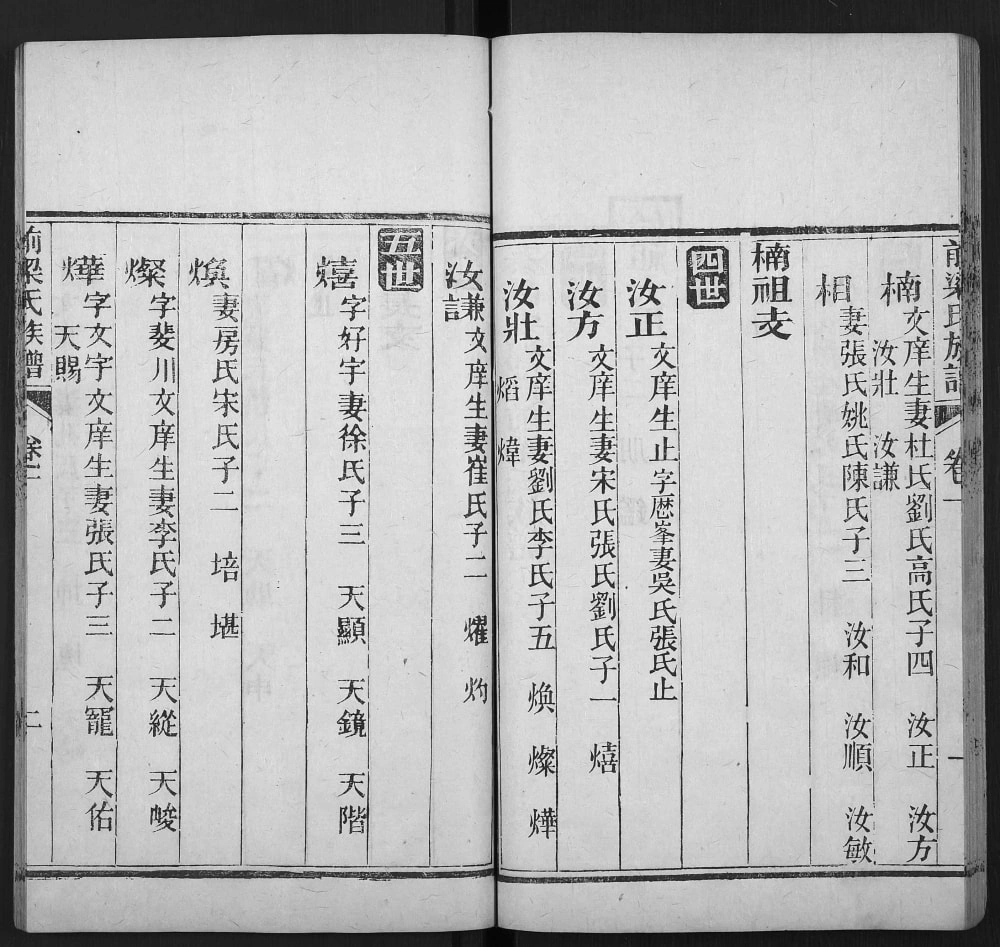 前梁氏族譜 卷一 一
楠 文庠生妻杜氏劉氏高氏子四 汝正 汝方
汝壯 汝謙
相 妻張氏姚氏陳氏子三 汝和 汝順 汝敏
楠祖支
四世
汝正 文庠生止字歷峯妻吳氏張氏止
汝方 文庠生妻宋氏張氏劉氏子一 熺
汝壯 文庠生妻劉氏李氏子五 煥 燦 燁
熖 煒
汝謙 文庠生妻崔氏子二 燿 灼
五世
熺 字好宇妻徐氏子三 天顯 天鏡 天階
煥 妻房氏宋氏子二 培 堪
燦 字斐川文庠生妻李氏子二 天縱 天畯
燁 字文宇文庠生妻張氏子三 天寵 天佑
天賜
前梁氏族譜 卷一 二